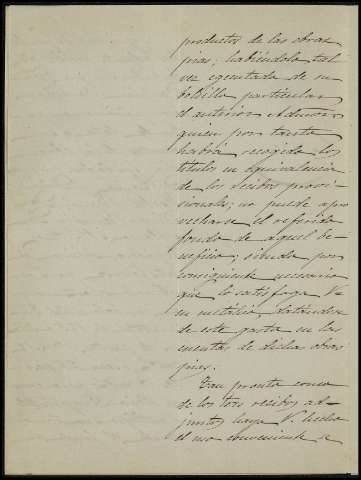 productos de las obras
pias; habiéndola tal
vez egecutado de su
bolsillo particular
el anterior Admor.
quien por tanto
habrá recogido los
títulos en equivalencia
de los recibos provi-
sionales; no puede apro
vecharse el referido
fondo de aquel be-
neficio; siendo por
consiguiente necesario
que lo satisfaga V.
en metálico, datándose
de este gasto en las
cuentas de dichas obras
pias.
Tan pronto como
de los tres recibos ad-
juntos haya V. hecho
el uso conveniente se